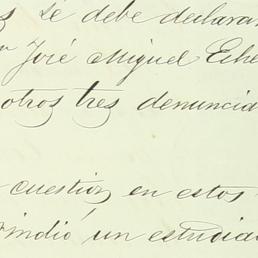 se debe declarar
José Miguel Eche
otros tres denuncia
cuestion en estos
rindió un estudia